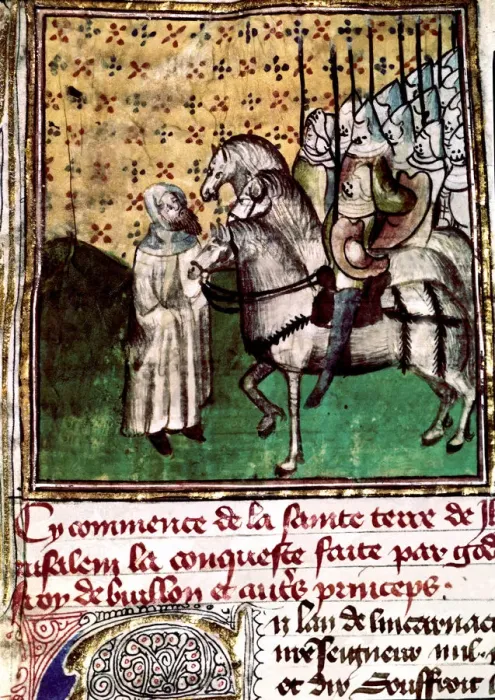 Cy commence de la sainte terre de Jh
rusalem la conqueste faite par god
froy de buillon et aut's princeps.
n lan de lincarnaci
nre seigneur mil
et dix souffroit